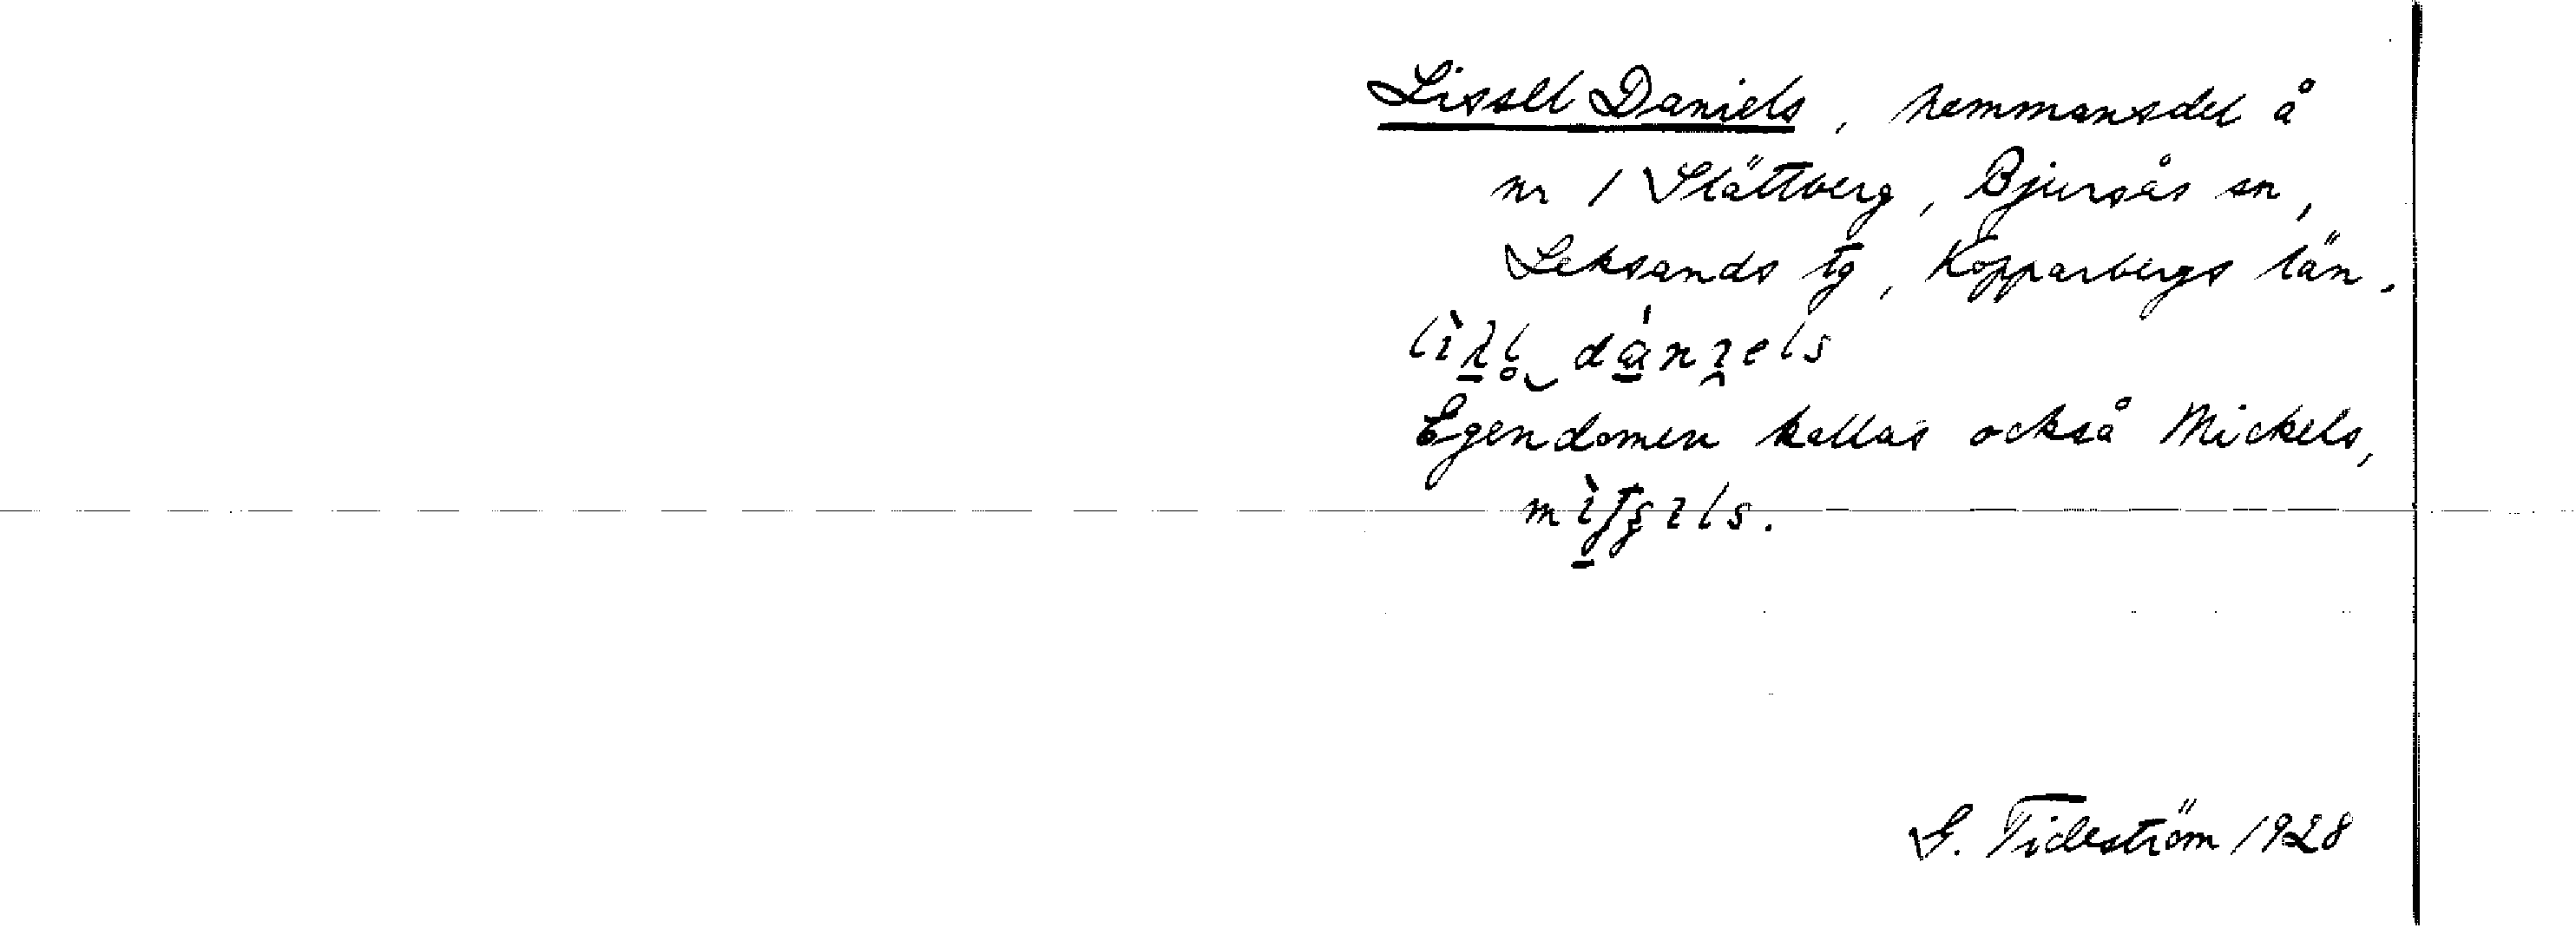 Lissel Daniels, hemmansdel å
nr 1 Slättberg, Bjursås sn,
Leksands tg, Kopparbergs län.
Egendomen kallas också Mickels,
G. Tideström 1928